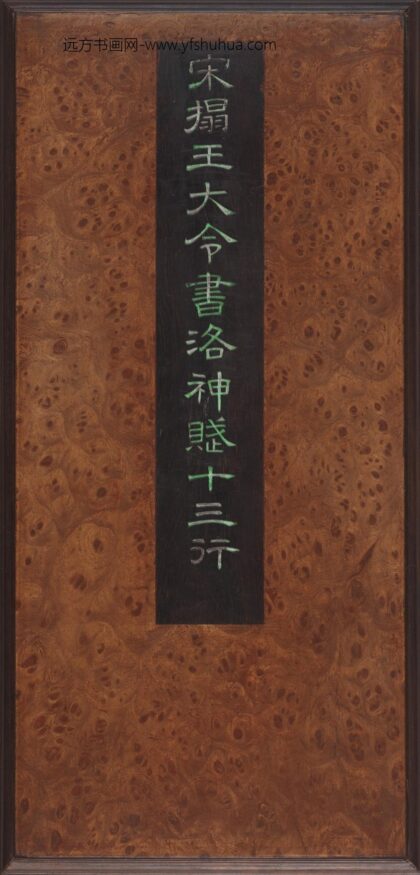 远方书画网-www.yfshuhua.com
宋搨王大令書洛神賦十三行